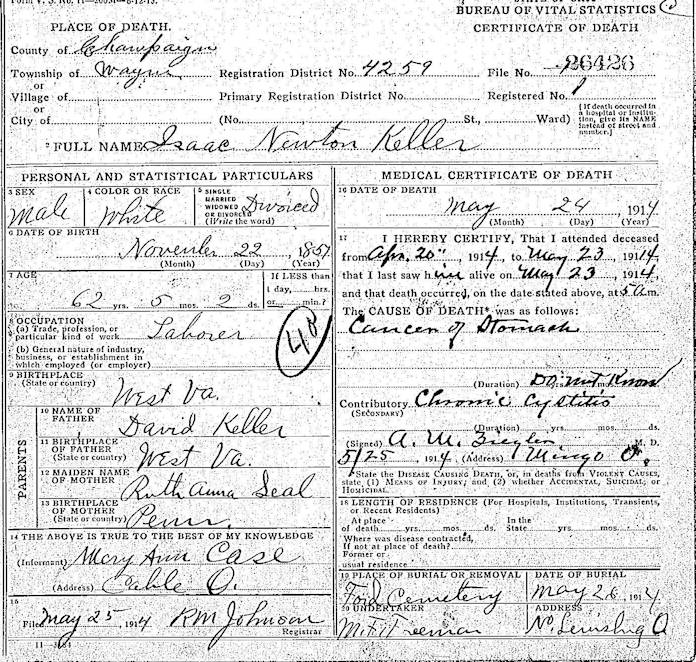 BUREAU OF VITAL STATISTICS
CERTIFICATE OF DEATH
PLACE OF DEATH.
County of Champaign
Township of Wayne Registration District No. 4259 File No. 26426
or
Village of Primary Registration District No. Registered No.
or
City of (No. St., Ward) [If death occurred in a hospital or institution, give its NAME instead of street and number.]
2 FULL NAME Isaac Newton Keller
PERSONAL AND STATISTICAL PARTICULARS
3 SEX Male
4 COLOR OR RACE White
5 SINGLE MARRIED WIDOWED OR DIVORCED (Write the word) Divorced
6 DATE OF BIRTH
November 22, 1851
(Month) (Day) (Year)
7 AGE
62 yrs. 5 mos. 2 ds.
If LESS than
1 day, hrs.
or min.?
8 OCCUPATION
(a) Trade, profession, or
particular kind of work Laborer
(b) General nature of industry,
business, or establishment in
which employed (or employer)
40
9 BIRTHPLACE
(State or country) West Va.
PARENTS
10 NAME OF
FATHER David Keller
11 BIRTHPLACE
OF FATHER
(State or country) West Va.
12 MAIDEN NAME
OF MOTHER Ruth Anna Seal
13 BIRTHPLACE
OF MOTHER
(State or country) Penn.
14 THE ABOVE IS TRUE TO THE BEST OF MY KNOWLEDGE
(Informant) Mary Ann Case
(Address) Cable O.
15
Filed May 25, 1914 RM Johnson
Registrar
MEDICAL CERTIFICATE OF DEATH
16 DATE OF DEATH
May 24, 1914
(Month) (Day) (Year)
17 I HEREBY CERTIFY, That I attended deceased
from Apr. 20, 1914, to May 23, 1914,
that I last saw him alive on May 23, 1914,
and that death occurred, on the date stated above, at 5 a m.
The CAUSE OF DEATH* was as follows:
Cancer of Stomach
(Duration) Do not Know
Contributory Chronic Cystitis
(SECONDARY)
(Duration) yrs. mos. ds.
(Signed) A. M. Ziegler M. D.
5/25, 1914, (Address) Mingo O.
*State the DISEASE CAUSING DEATH, or, in deaths from VIOLENT CAUSES,
state (1) MEANS OF INJURY; and (2) whether ACCIDENTAL, SUICIDAL, or
HOMICIDAL.
18 LENGTH OF RESIDENCE (For Hospitals, Institutions, Transients,
or Recent Residents)
At place In the
of death yrs. mos. ds. State yrs. mos. ds.
Where was disease contracted,
If not at place of death?
Former or
usual residence
19 PLACE OF BURIAL OR REMOVAL
Ford Cemetery
DATE OF BURIAL
May 26, 1914
20 UNDERTAKER
ADDRESS
No. Lewisburg O